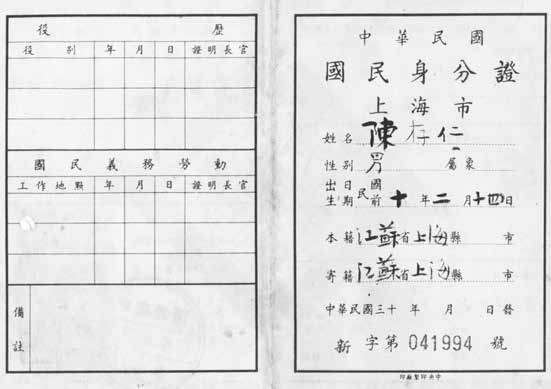 役歷
役別 年 月 日 證明長官
國民義務勞動
工作地點 年 月 日 證明長官
備註
中華民國
國民身分證
上海市
姓名 陳存仁
性別 男 屬象
出生日期 民國前 十 年 二 月 十四 日
本籍 江蘇 省 上海 縣 市
寄籍 江蘇 省 上海 縣 市
中華民國三十 年 月 日發
新 字第 041994 號
中央印製廠印